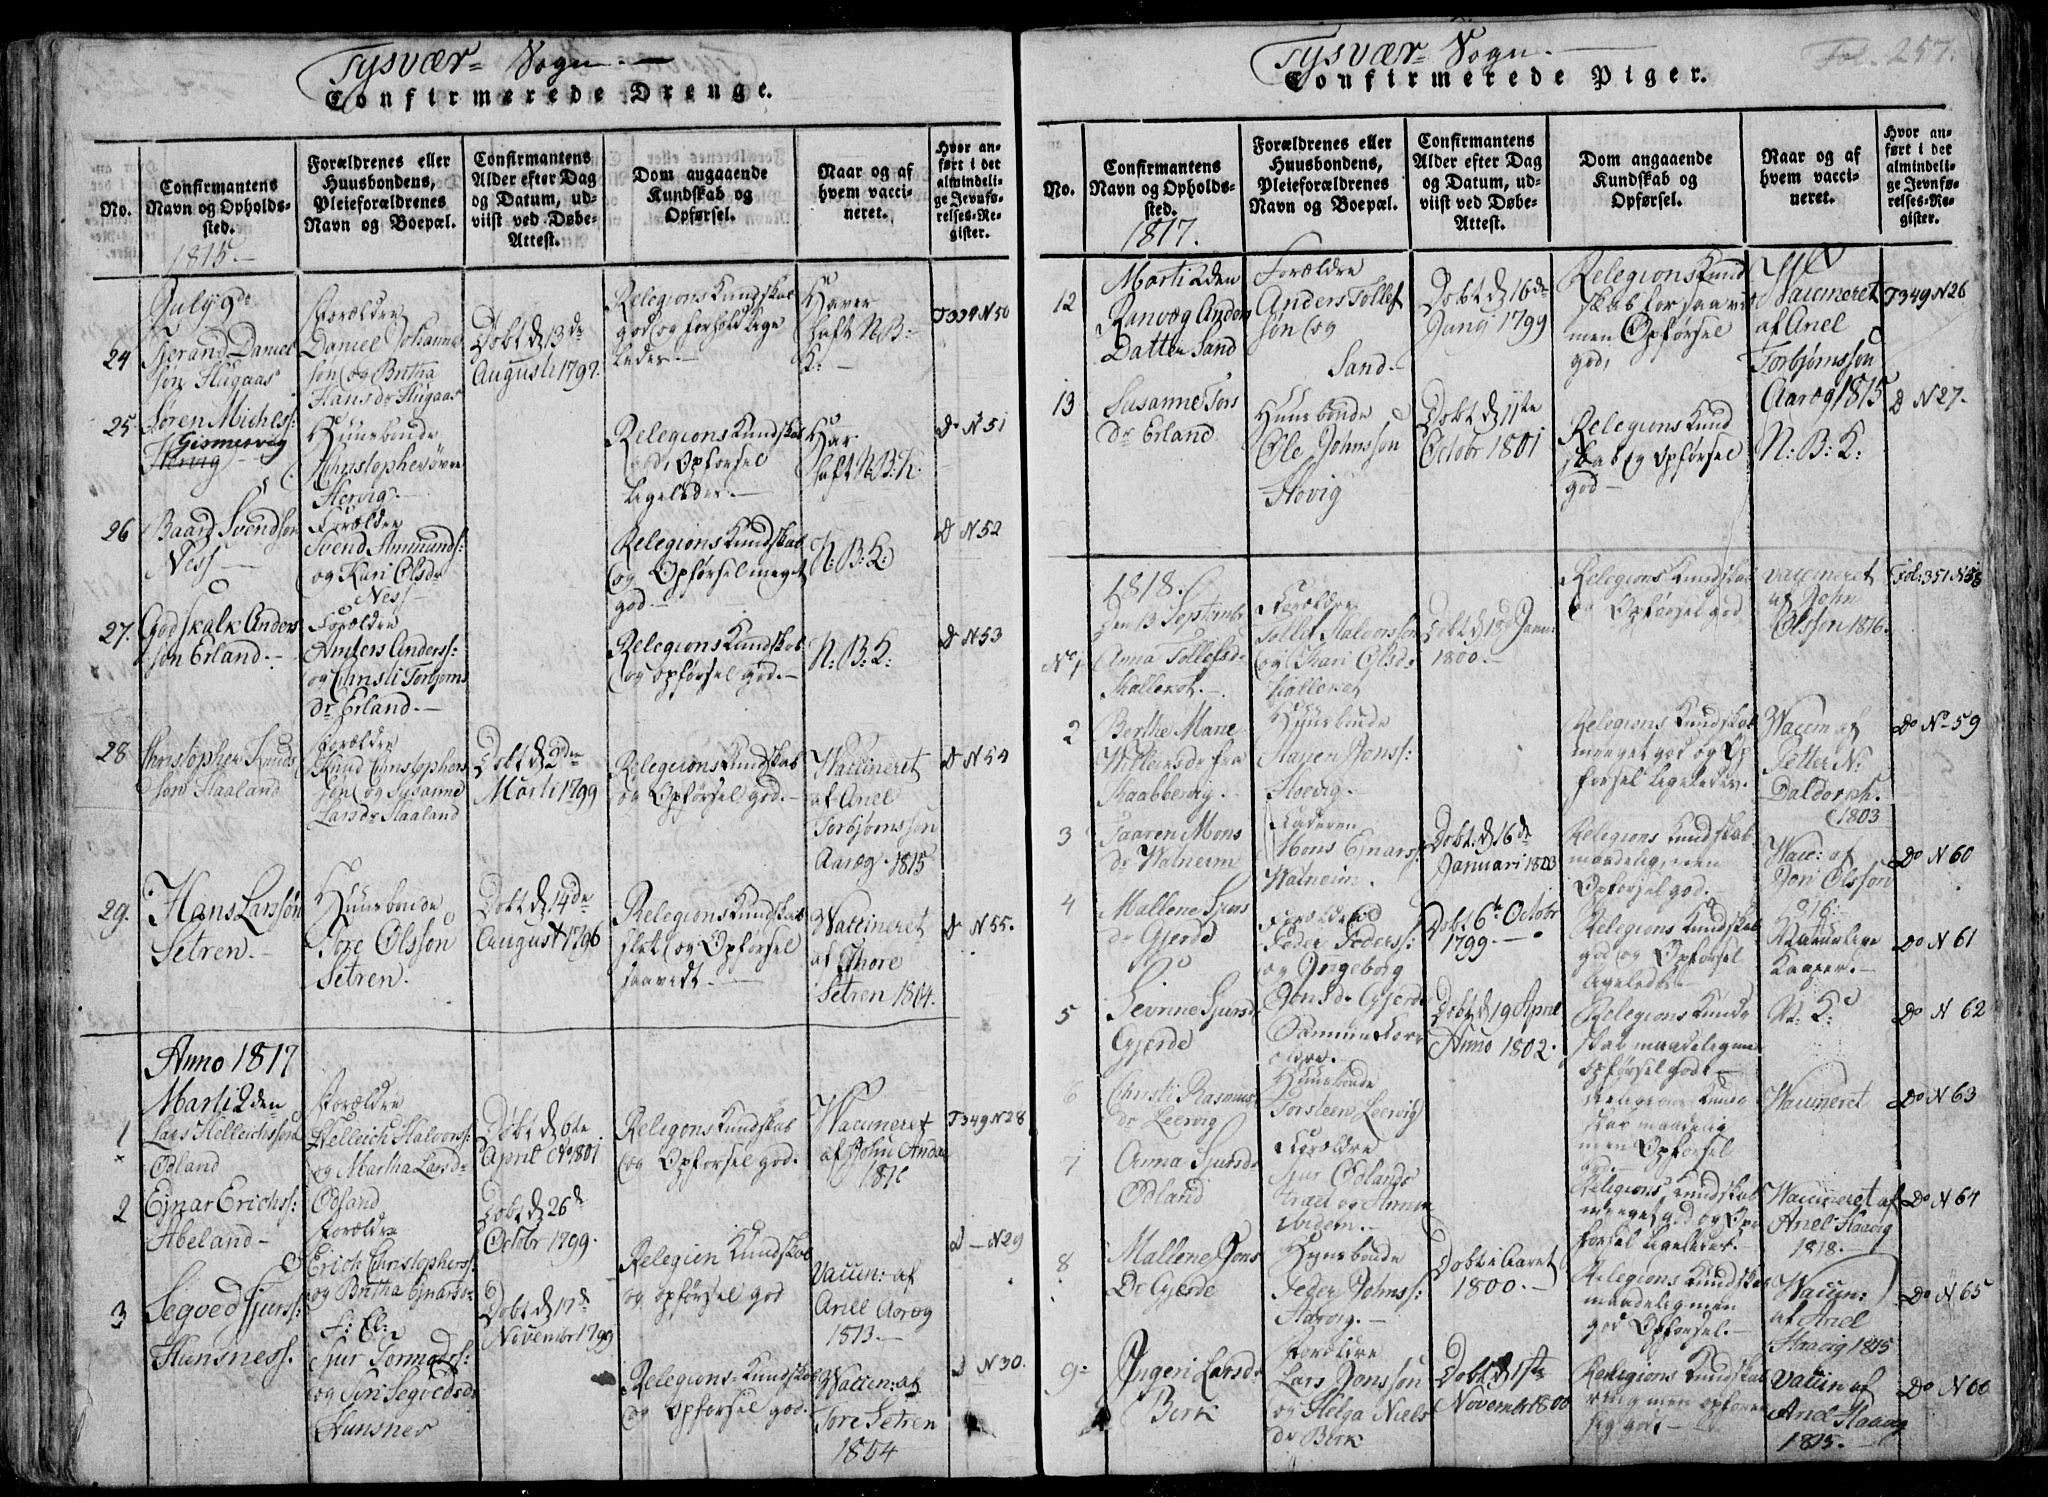 Tysvær Sogn.
Confirmerede Drenge.
No.
Confirmantens
Navn og Opholds-
sted.
1815.
Forældrenes eller
Huusbondens,
Pleieforældrenes
Navn og Boepæl.
Confirmantens
Alder efter Dag
og Datum, ud-
viist ved Døbe-
Attest.
Dom angaaende
Kundskab og
Opførsel.
Naar og af
hvem vacci-
neret.
Hvor an-
ført i det
almindeli-
ge Jevnfø-
relses-Re-
gister.
July 9de
24
Daniel
søn
Forældre
Daniel Johannes
søn og Britha
Hansdr
Døbt d 13de
Augusti 1797.
Relegions Kundskab
god og forhold lige
ledes.
Haver
haft N B:
K:
F 339 N 50
25
Søren Michelss:
Gismervig
Hervig
Huusbonde
Christopher øvre
Hervig.
Relegions Kundskab
god, Opførsel
ligeledes.
Har
haft N B: K.
D N 51
26
Baard Svendsøn
Ness
Forældre
Svend Ammunds:
og Kari Olsdr
Ness
Relegions Kundskab
og Opførsel meget
god
N: B: K:
D N 52
27.
Godskalk Anders
søn Erland.
Forældre
Anders Anderss:
og Christi Torbjørns
dr Erland.
Relegions Kundskab
og opførsel god.
N: B: K:
D N 53
28
Christopher Knuds
søn Haaland
Forældre
Knud Christophers
søn og Susanne
Larsdr Haaland
Døbt d 2den
Marti 1799
Relegions Kundskab
og Opførsel god.
Vaccineret
af Ariel
Torbjørnssøn
Aarøg 1815
D N 54
29.
Hans Larssøn
Setren.
Huusbonde
Tore Olssøn
Setren.
Døbt d 14de
August 1796
Relegions Kundskab
slet og Opførsel
saavidt.
Vaccineret
af Thore
Setren 1814.
D N 55.
Anno 1817
Marti 2den
1
Lars Helleichssøn
Odland
Forældre
Helleich Halvors:
og Martha Larsdr
Odland
Døbt d 6te
April 1801
Relegions Kundskab
og Opførsel god.
Vaccineret
af John
F 349 N 28
2
Ejnar Erichss:
Abeland
Forældre
Erich Christophers:
og Britha Ejnarsdr
Døbt d 26de
Octobr 1799.
Relegion Kundskab
og opførsel god
Vaccin: af
Ariel Aarøg
1813.
D N 29
3
Segved Sjurss:
Hunsness.
Sjur Tormodss:
og Siri Segvedsdr
Hunsnes
Døbt d 17de
Novembr 1799
Relegions-Kundskab
og opførsel god.
Vaccin: af
Tore Setren
D N 30.
Tysvær Sogn.
Confirmerede Piger.
Fol. 257.
No.
Confirmantens
Navn og Opholds-
sted.
1817.
Forældrenes eller
Huusbondens,
Pleieforældrenes
Navn og Boepæl.
Confirmantens
Alder efter Dag
og Datum, ud-
viist ved Døbe-
Attest.
Dom angaaende
Kundskab og
Opførsel.
Naar og af
hvem vacci-
neret.
Hvor an-
ført i det
almindeli-
ge Jevnfø-
relses-Re-
gister.
Marti 2den
12
Ranvæg Anders
Datter Sand
Forældre
Anders Tollef
søn og
Sand
Døbt d 16de
Junij 1799
Relegions Kund
skab for saavit
men Opførsel
god,
Vaccineret
af Ariel
Torbjørnssøn
Aarøg 1815
F 349 N 26
13
Susanne Tors
dr Erland
Huusbonde
Ole Johnssøn
Hovig
Døbt d 11te
Octobr 1801
Relegions Kund
skab og opførsel
god
N: B: K:
D N 27.
1818.
Den 13 Septembr
No 1
Anna Tollefsdr
Kallekot.
Forældre
Tollef Halvorssøn
og Kari Olsdr
Kallekot
Døbt d 18 Janu:
1800.
Relegions Kundskab
og Opførsel god
vaccineret
af John
Olssøn 1816.
Fol: 351 N 58
2
Berthe Marie
Willumsdr fra
Huusbonde
Hovig.
Relegions Kundskab
meget god og Op
førsel ligeledes.
Vaccin af
Petter N:
Daldorph.
1803
Do No 59
3
Taaren Mons
dr Watneim
Faderen
Mons Ejnarss:
Watneim.
Døbt d 16de
Januari 1803
Relegions Kundskab
maadelig, men
Opførsel god.
Vacc: af
Joni Olssøn
816.
Do N 60
4
Mallene Sjurs
dr Gjerde
Peder Pederss:
og Ingeborg
Jonsdr Gjerde
Døbt 6te Octobr
1799.
Relegions Kundskab
god og Opførsel
ligeledes
Naturlige
Kopper.
Do N 61
5
Sevrine Sjursdr
Gjerde
Samme Foræ
ldre.
Døbt d 19 April
Anno 1802.
Relegions Kund
skab maadelig men
opførsel godt
N: K:
Do N 62
6
Christi Rasmus
dr Leervig
Huusbonde
Torsteen Leervig
Relegions Kund
skab maadelig
men Opførsel
god.
Vaccineret
Do N 63
7
Anna Sjursdr
Odland
Forældre
Sjur Odlands
træd og Anna
ibidem.
Relegions Kundskab
meeget god og Op
førsel ligeleret.
Vaccineret af
Ariel Haavig
1818.
Do N 64
8
Mallene Jons
Dr Gjerde
Huusbonde
Peder Johnss:
Aarvig.
Døbt i Aaret
1800.
Relegions Kundskab
maadelig men
god Opførsel.
Vaccin:
af Ariel
Haavig 1815
Do N 65
9
Ingeri Larsdr
Birk
Forældre
Lars Jonssøn
og Helga Niels
dr Birk
Døbt d 1ste
Novembr 1800
Relegions Kundskab
ring men opfører
sig got
Vaccin af
Ariel Haavig
1815.
Do N 66